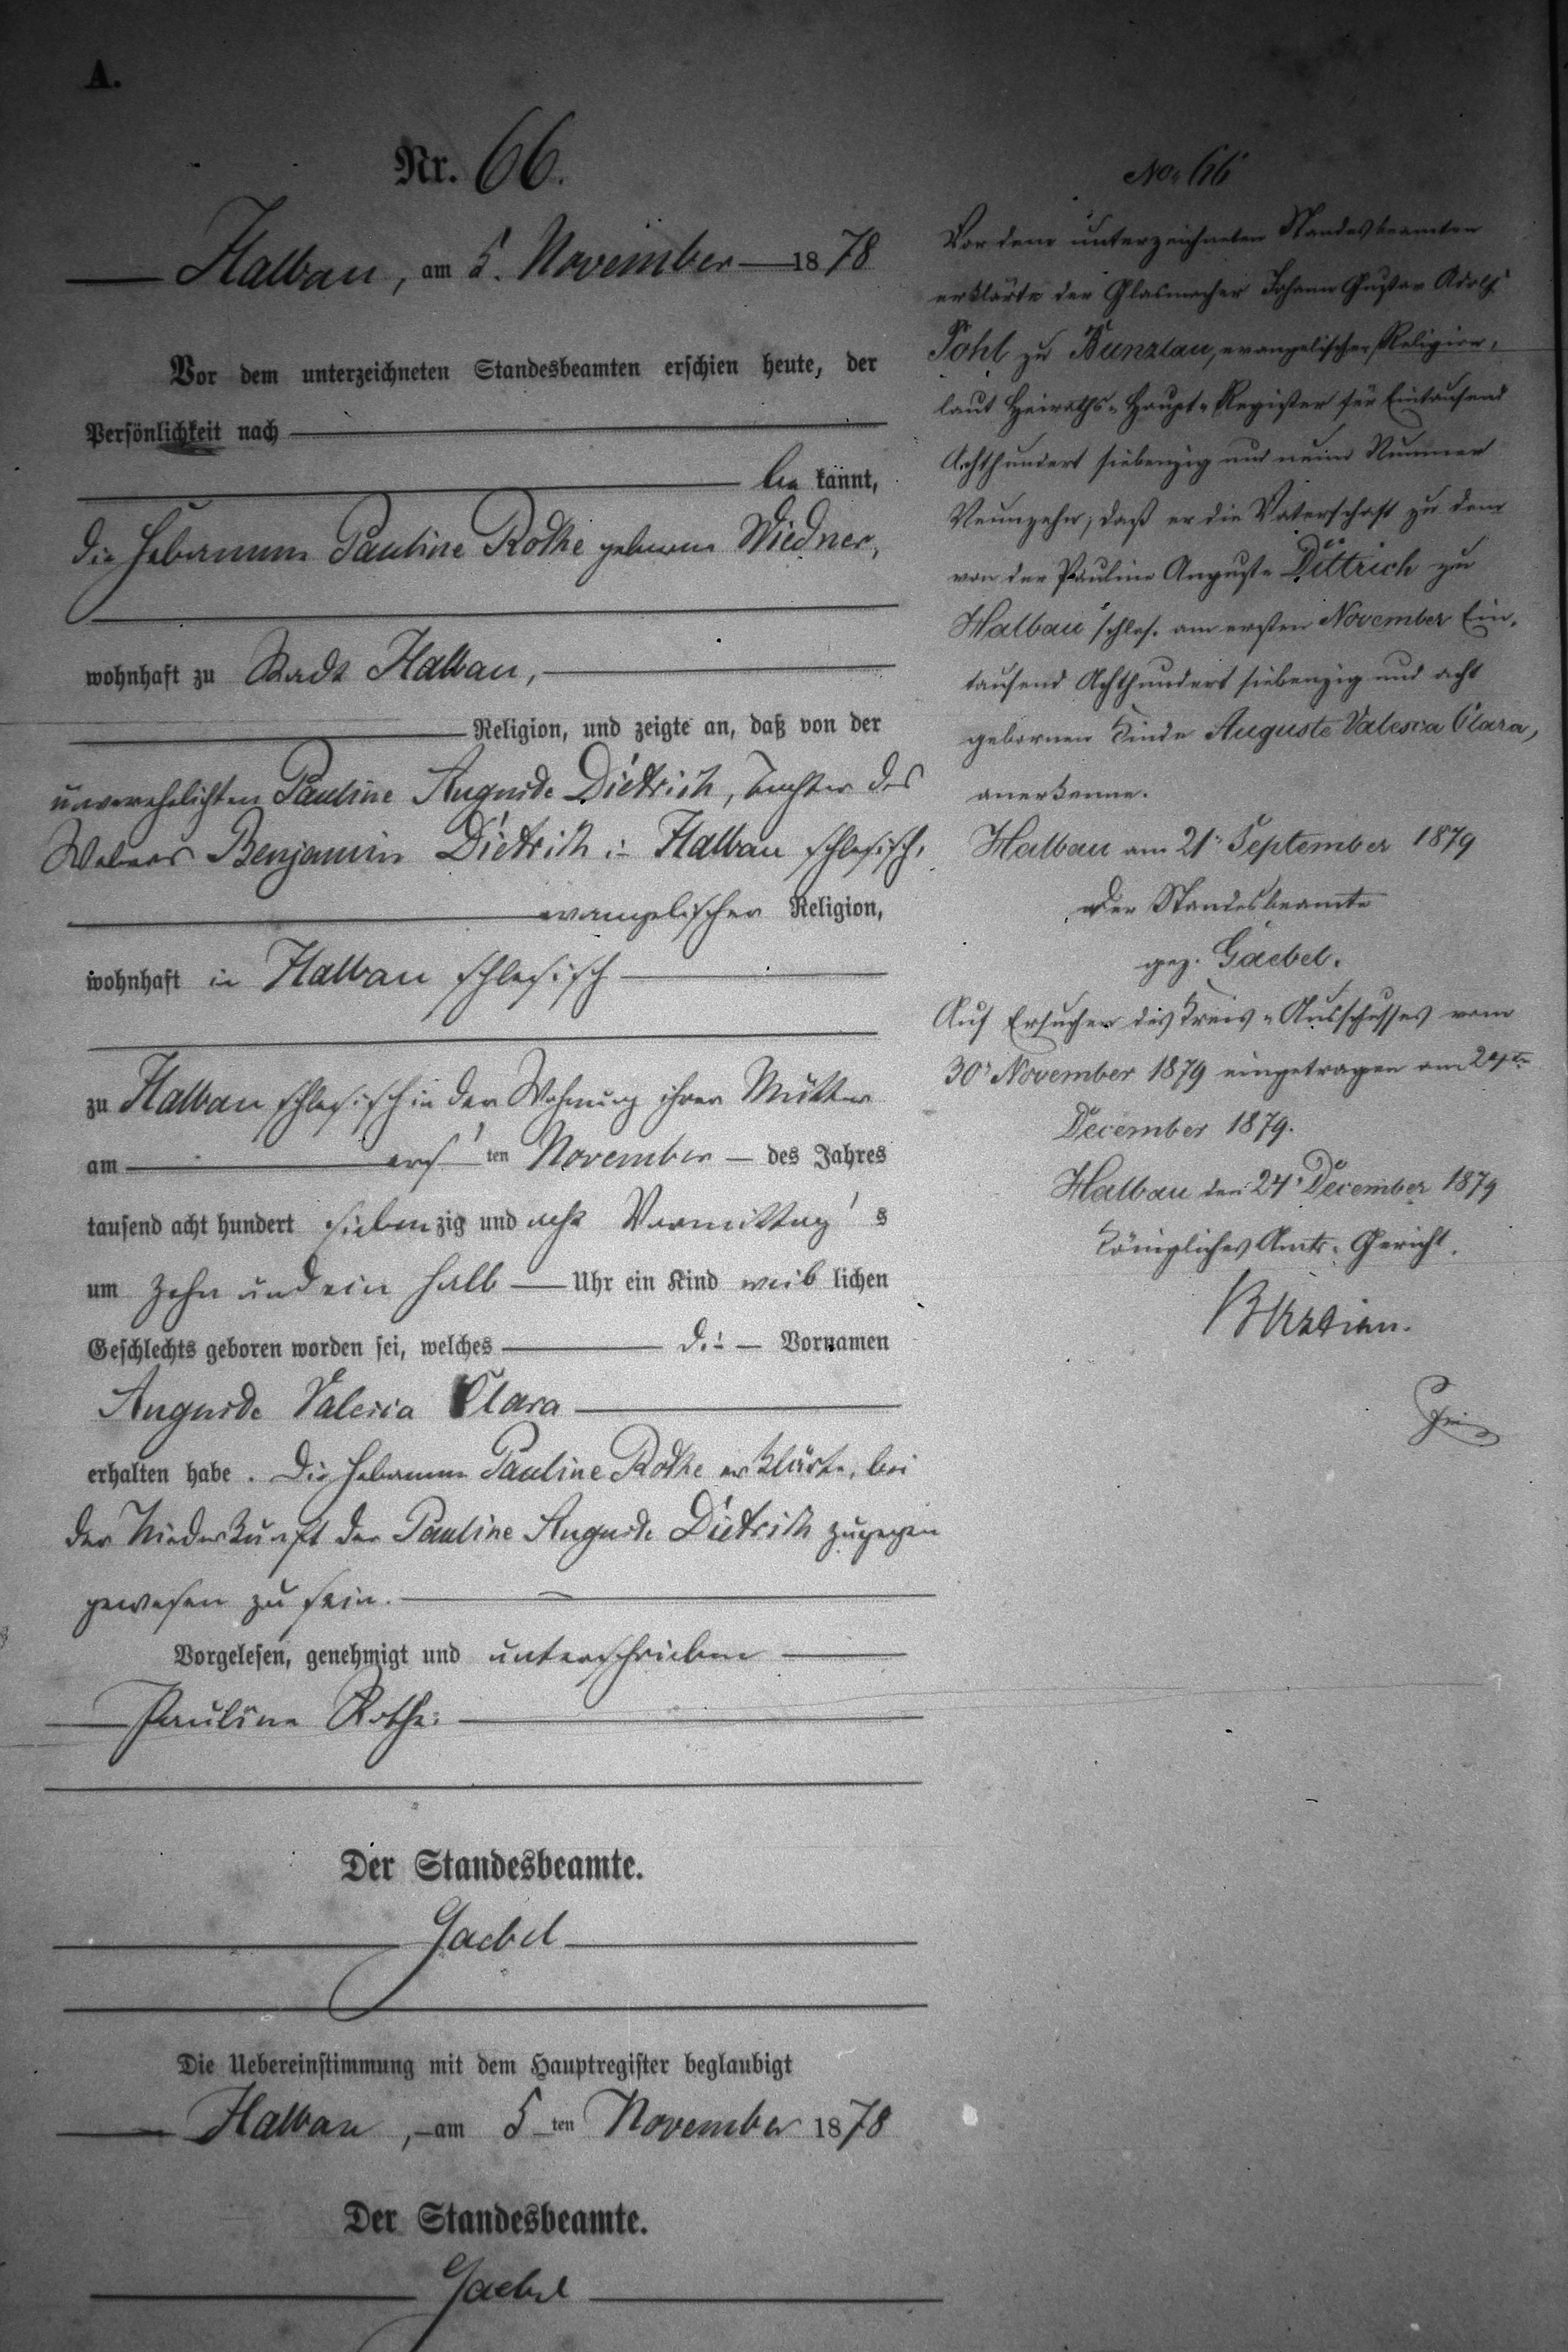 A.
Nr. 66.
Halbau, am 5. November 1878
Vor dem unterzeichneten Standesbeamten erschien heute, der
Persönlichkeit nach
be kannt,
die Hebamme Pauline Rothe geborene Wiedner,
wohnhaft zu Stadt Halbau,
Religion, und zeigte an, daß von der
unverehelichten Pauline Auguste Dietrich, Tochter des
Webers Benjamin Dietrich in Halbau schlesisch,
evangelischer Religion,
wohnhaft in Halbau schlesisch
zu Halbau schlesisch in der Wohnung ihrer Mutter
am ers ten November des Jahres
tausend acht hundert sieben zig und acht Vormittag s
um zehn und ein halb Uhr ein Kind weib lichen
Geschlechts geboren worden sei, welches die Vornamen
Auguste Valesca Clara
erhalten habe. Die Hebamme Pauline Rothe erklärte, bei
der Niederkunft der Pauline Auguste Dietrich zugegen
gewesen zu sein.
Vorgelesen, genehmigt und unterschrieben
Pauline Rothe.
Der Standesbeamte.
Gaebel
Die Uebereinstimmung mit dem Hauptregister beglaubigt
Halbau, am 5 ten November 1878
Der Standesbeamte.
Gaebel
No. 66
Vor dem unterzeichneten Standesbeamten
erklärte der Glasmacher Johann Gustav Adolf
Pohl zu Bunzlau, evangelischer Religion,
laut Heiraths-Haupt-Register für Eintausend
Achthundert siebenzig und neun Nummer
Neunzehn, daß er die Vaterschaft zu dem
von der Pauline Auguste Dittrich zu
Halbau schles. am ersten November Ein-
tausend Achthundert siebenzig und acht
gebornen Kinde Auguste Valesca Clara,
anerkenne.
Halbau am 21. September 1879
Der Standesbeamte
gez. Gaebel.
Auf Ersuchen des Kreis-Ausschusses vom
30. November 1879 eingetragen am
December 1879.
Halbau den 24. December 1879
Königliches Amts-Gericht.